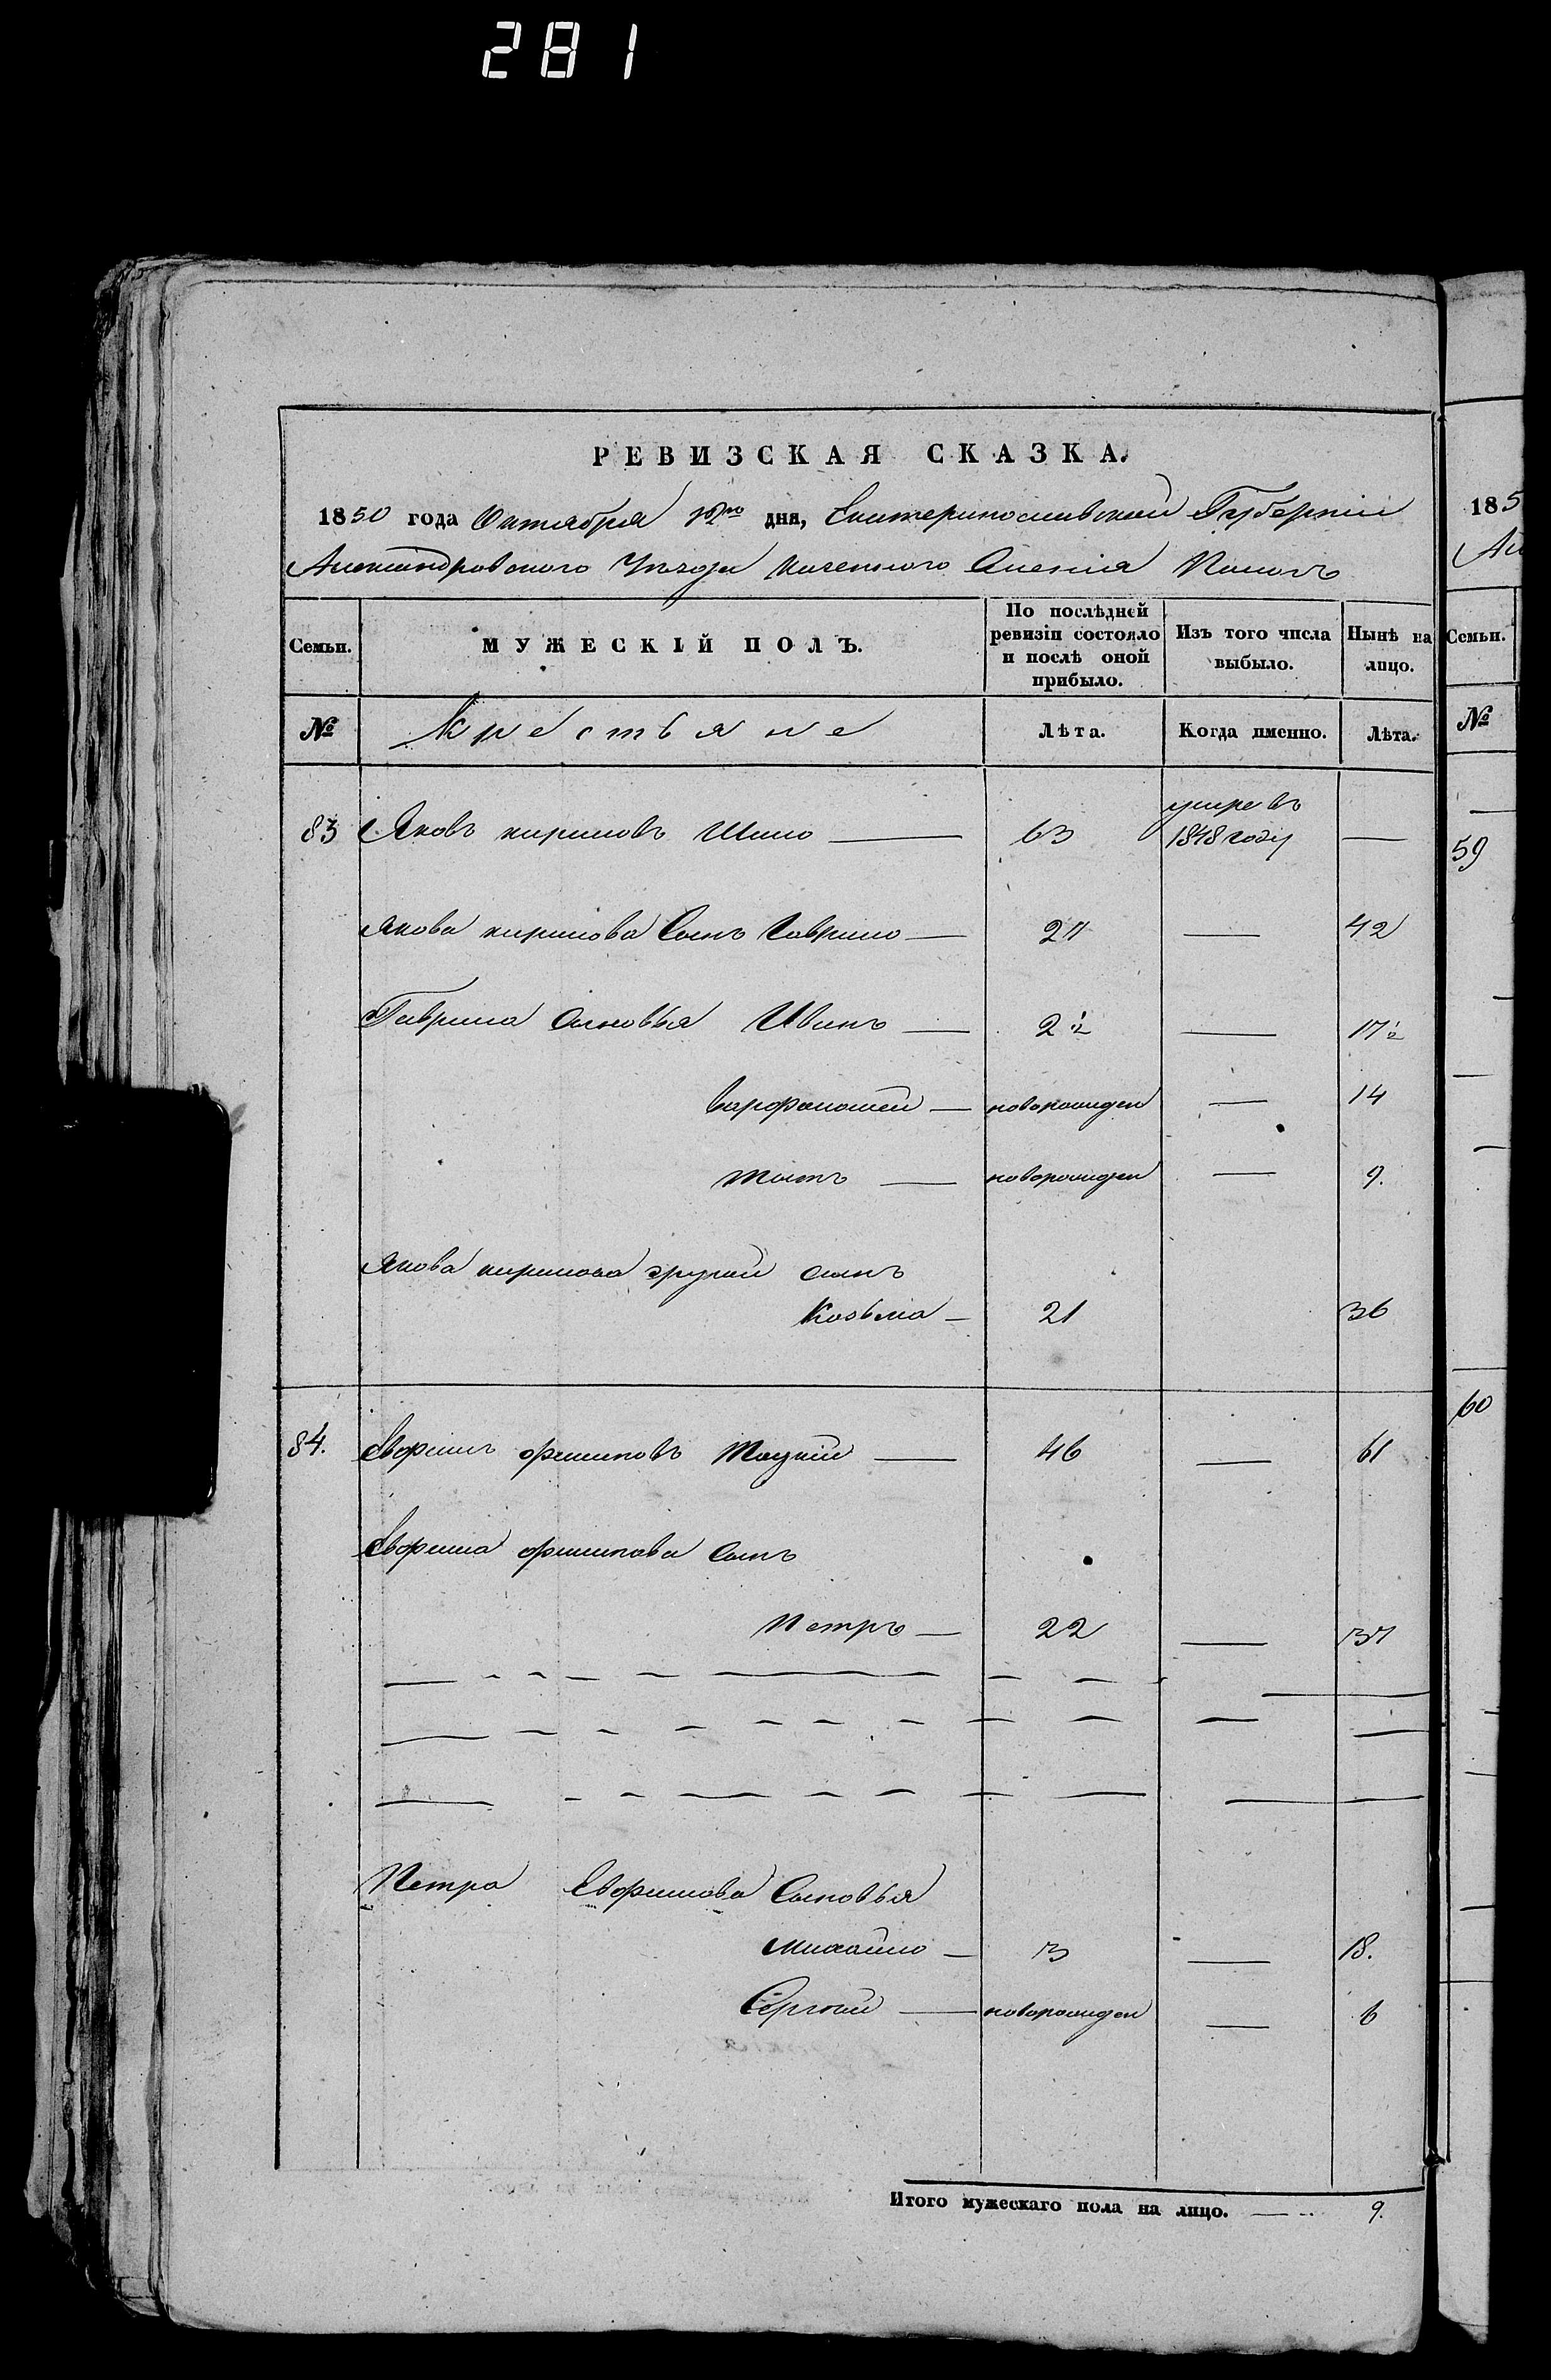 281
РЕВИЗСКАЯ СКАЗКА.
1850 года Октября дня, Екатеринославской Губернии
Александровского Уезда казенного Селения
Семьи. МУЖЕСКІЙ ПОЛЪ. По послѣдней ревизіи состояло и послѣ оной прибыло. Изъ того числа выбыло. Нынѣ на лицо.
№ Крестьяне Лѣта. Когда именно. Лѣта.
83 Яковъ кириловъ Шило — 63 умре въ 1848 году —
Якова кирилова Сынъ Гаврило — — 42
Гаврила Сыновья Иванъ — 2½ — 17½
варфоломей — новорожден — 14
новорожден — 9.
Якова кирилова другой сынъ
Козьма — 21 36
84. Евфимъ филиповъ — 46 — 61
Евфима филипова Сынъ
Петръ — 22 — 37
Петра Евфимова Сыновья
михайло — 3 — 18.
Сергей — новорожден — 6
Итого мужескаго пола на лицо. — 9.
185
Ал
Семьи.
№
59
60